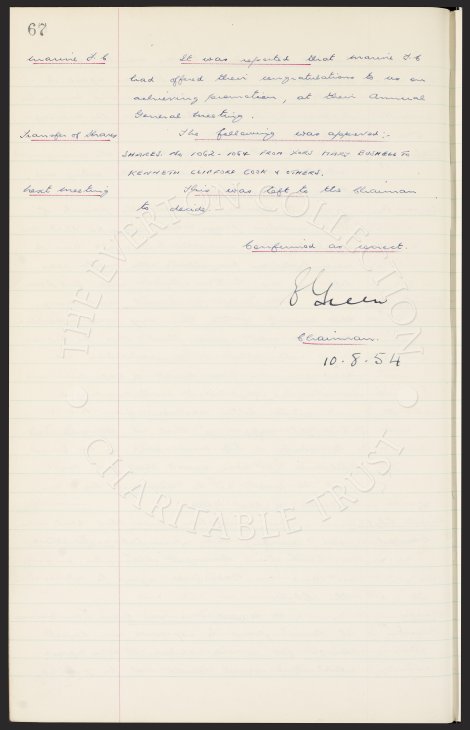 67
Marine F.C
It was reported that Marine F.C
had offered their congratulations to us on
achieving promotion, at their Annual
General Meeting.
Transfer of Shares
The following was approved:-
SHARES. No 1062 - 1064 FROM MARY BUSHELL TO
KENNETH CLIFFORD COOK & OTHERS.
Next Meeting
This was left to the Chairman
to decide.
Confirmed as correct.
Green
Chairman.
10.8.54
THE EVERTON COLLECTION
CHARITABLE TRUST